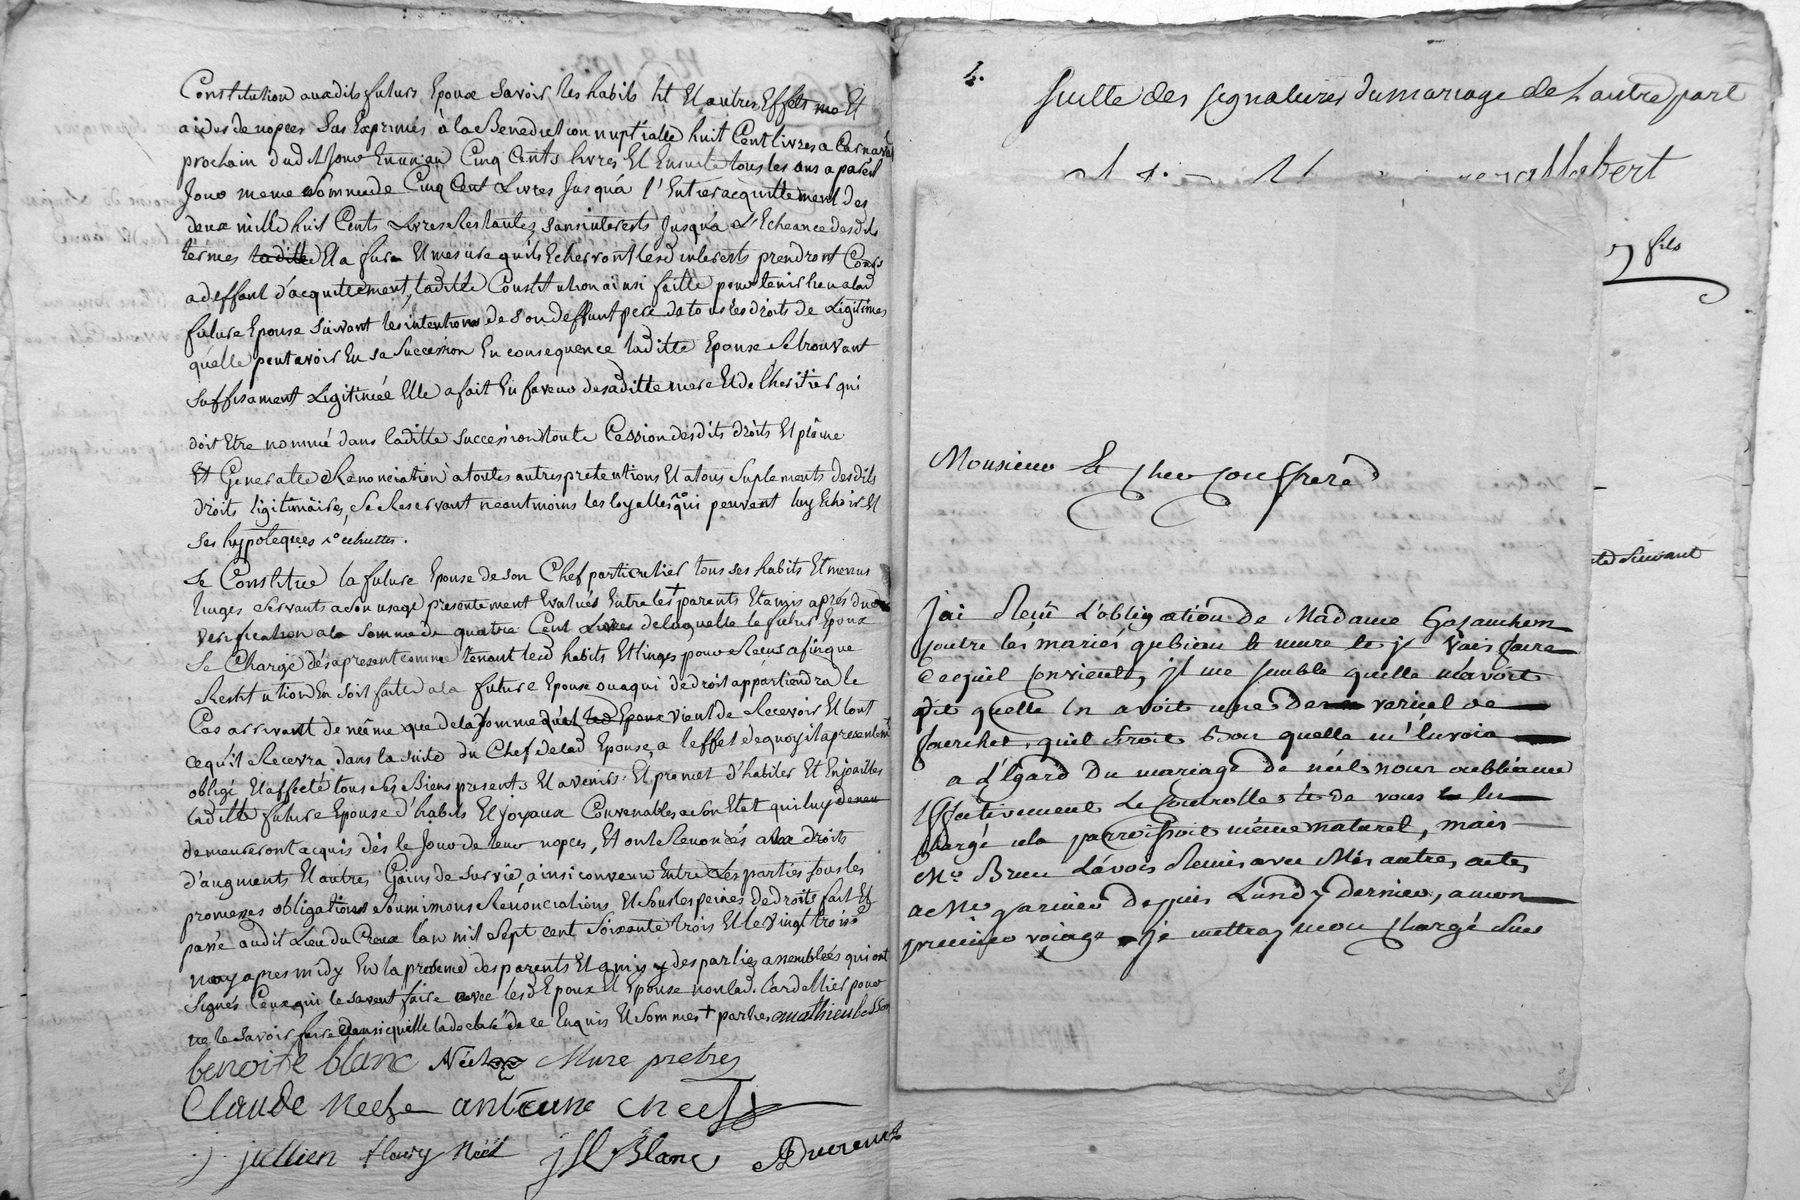 Constitution auxdits futurs Epoux Savoir les habits lit Et autres Effets
de nopces Sus Exprimés à la Benediction nuptialle huit Cent livres a Carnaval
prochain dudit Jour En un an Cinq Cents livres Et Ensuite tous les ans a pareil
Jour meme Somme de Cinq Cent Livres Jusqu'a l'Entier acquittement des
deux mille huit Cents Livres Restantes, sans interests Jusqu'a L'Echeance desdits
termes Et a fur Et mesure qu'ils Echerront lesd interests prendront Cours
a deffaut d'acquittement, laditte Constitution ainsi faitte pour tenir lieu a lad
future Epouse Suivant les intentions de Son deffunt pere de tous les droits de Légitimes
qu'elle peut avoir En sa Succession En consequence laditte Epouse Se trouvant
Suffisament Légitimée Elle a fait En faveur de saditte mere Et de l'heritier qui
doit Etre nommé dans laditte Succession toute Cession desdits droits Et pleine
Et Generalle Renonciation a toutes autres pretentions Et a tous Suplements desdits
droits légitimaires, Se Reservant neantmoins les loyalles qui peuvent luy Echoir Et
Ses hypoteques
Se Constitue la future Epouse de son Chef particulier tous ses habits Et menus
linges Servants a Son usage presentement Evalués Entre les parents Et amis après due
verification a la Somme de quatre Cent Livres de laquelle le futur Epoux
Se Charge dès a present comme tenant lesd habits Et linges pour Recus afin que
Restitution En Soit faitte a la future Epouse ou a qui de droit appartiendra le
Cas arrivant de même que de la Somme qu'il led Epoux vient de Recevoir Et tout
ce qu'il Recevra dans la Suite du Chef de lad Epouse, a l'effet de quoy il a presentemt
obligé Et affecté tous Ses Biens presents Et avenirs. Et promet d'habiller Et Enjoailler
laditte future Epouse d'habits Et joyaux Convenables a Son Etat qui luy
demeureront acquis dès le Jour de leur nopces, Et ont Renoncés aux droits
d'augments Et autres Gains de Survie ainsi convenu Entre Les parties Sous les
promesses obligations Soumissions Rénonciations Et Sous les peines de droits fait Et
passé audit Lieu du Creux l'an mil Sept cent Soixante trois Et le vingt trois
may apres midy En la presence des parents Et amis des parties assemblées qui ont
Signés Ceux qui le savent faire avec lesd Epoux Et Epouse non lad. Cardellier pour
ne le Savoir faire ainsi qu'elle l'a declaré de ce Enquis Et Sommes parties
benoite blanc Mure pretre
Claude neel antoine neel
jullien fleury Néel J Blanc Ducreux
4.
Suitte des signatures du mariage de L'autre part
allibert
fils
Suivant
Monsieur & Cher Confrere
J'ai Reçu L'obligation de Madame
contre les mariés le mure Vais faire
ce qu'il convient, il me semble quelle m'avoit
dit quelle en avoit une de
fourchet, qu'il Seroit Bon quelle m'Envoia
a L'Egard du mariage de néel nous oubliame
Effectivement Le Controlle
chargé cela paroissoit même naturel, mais
Mr. Brun L'avois Remis avec Mes autres actes
a Mr. garnier depuis Lundy dernier, a mon
premier voiage je mettray mon chargé Sur